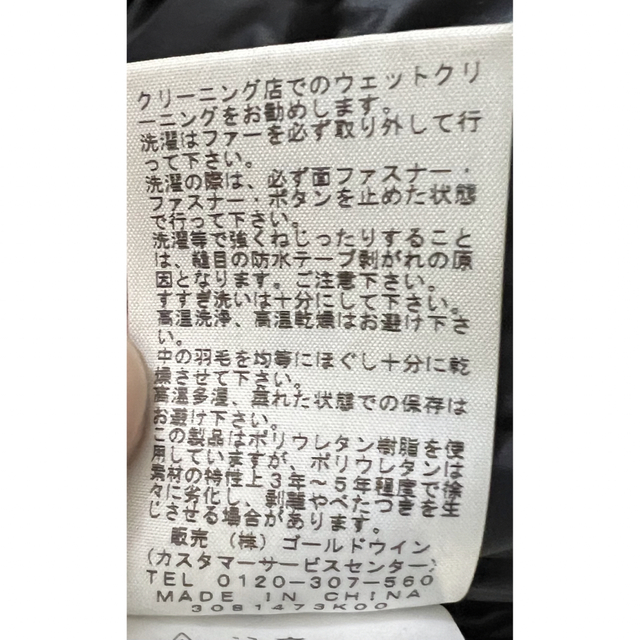 クリーニング店でのウェットクリ
ーニングをお勧めします。
洗濯はファーを必ず取り外して行
って下さい。
洗濯の際は、必ず面ファスナー・
ファスナー・ボタンを止めた状態
で行って下さい。
洗濯等で強くねじったりすること
は、縫目の防水テープ剥がれの原
因となります。ご注意下さい。
すすぎ洗いは十分にして下さい。
高温洗浄、高温乾燥はお避け下さ
い。
中の羽毛を均等にほぐし十分に乾
燥させて下さい。
高温多湿、蒸れた状態での保存は
お避け下さい。
この製品はポリウレタン樹脂を使
用していますが、ポリウレタンは
素材の特性上3年~5年程度で徐
々に劣化し、剥離やべたつきを生
じさせる場合があります。
販売 (株)ゴールドウイン
(カスタマーサービスセンター)
TEL 0120-307-560
MADE IN CHINA
3081473K00